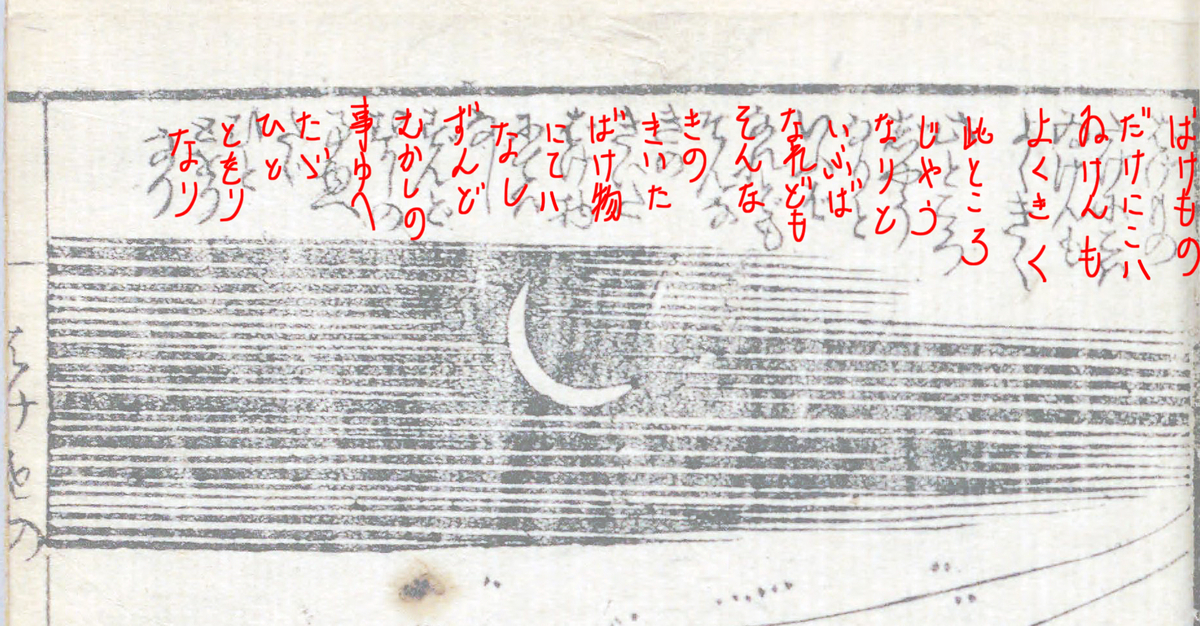 はけもの
だけにこハ
ゐけんも
よくきく
此ところ
じやう
なりと
いふいば
なれども
そんな
きの
きいた
ばけ物
にてハ
なし
ずんど
むかしの
事ゆへ
たゞ
ひと
とをり
なり